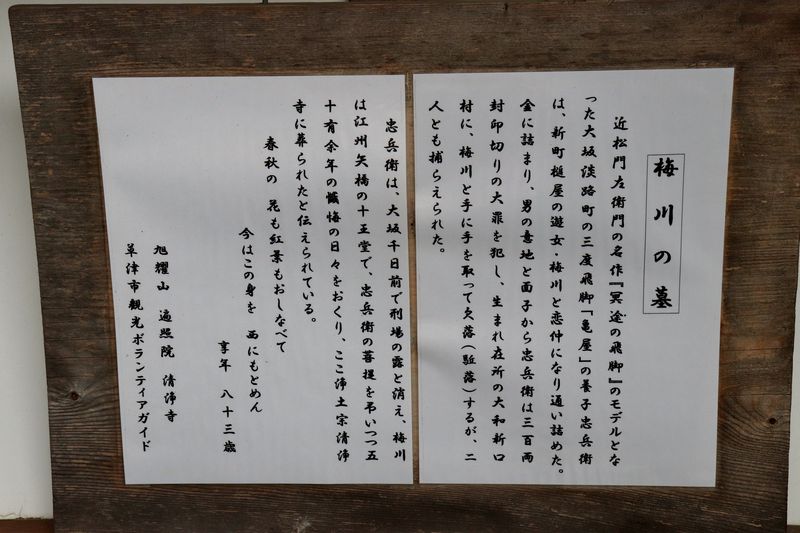 梅川の墓
近松門左衛門の名作『冥途の飛脚』のモデルとな
った大坂淡路町の三度飛脚「亀屋」の養子忠兵衛
は、新町槌屋の遊女・梅川と恋仲になり通い詰めた。
金に詰まり、男の意地と面子から忠兵衛は三百両
封印切りの大罪を犯し、生まれ在所の大和新口
村に、梅川と手に手を取って欠落(駈落)するが、二
人とも捕らえられた。
忠兵衛は、大坂千日前で刑場の露と消え、梅川
は江州矢橋の十王堂で、忠兵衛の菩提を弔いつつ五
十有余年の懺悔の日々をおくり、ここ浄土宗清浄
寺に葬られたと伝えられている。
春秋の 花も紅葉もおしなべて
今はこの身を 西にもとめん
享年 八十三歳
旭耀山 遍照院 清浄寺
草津市観光ボランティアガイド